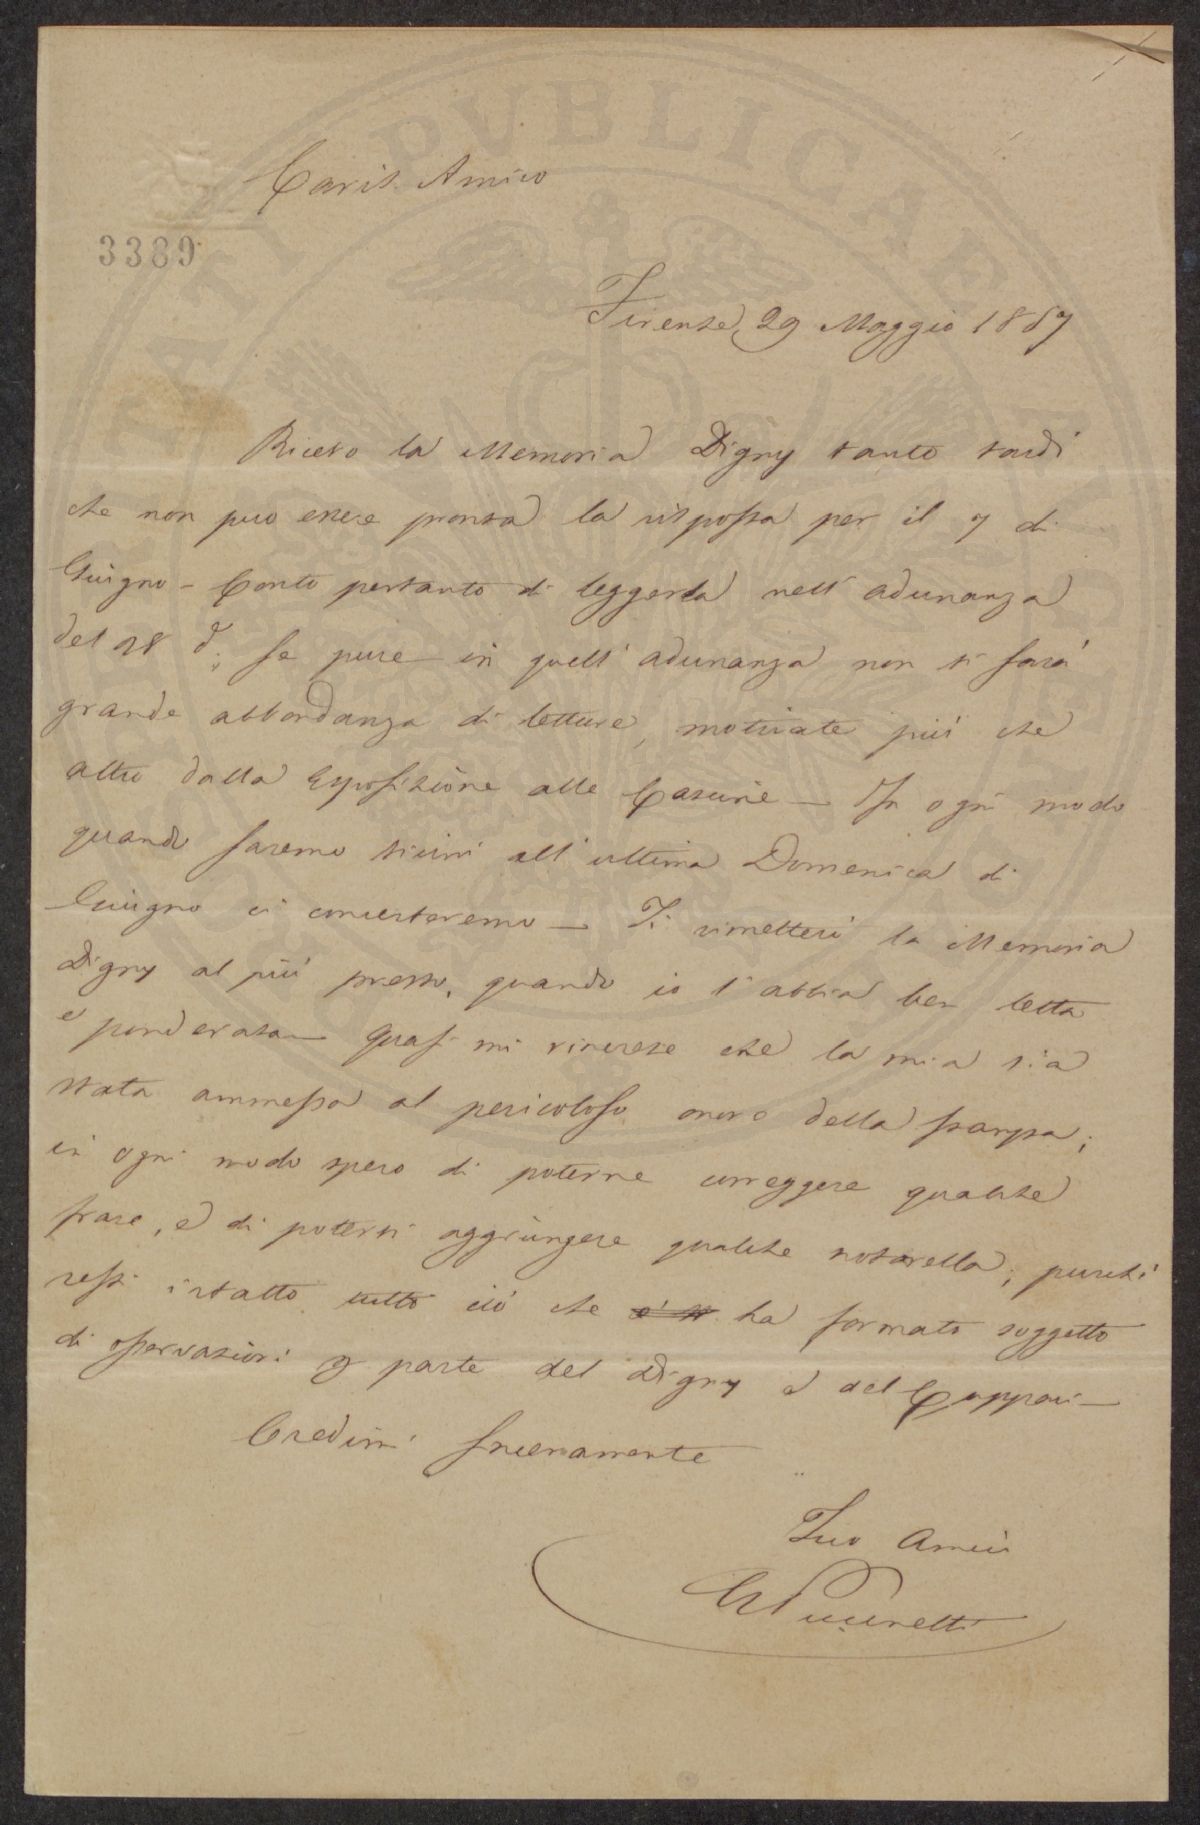 Caris. Amico
3389
Firenze, 29 Maggio 1857
Ricevo la Memoria Digny tanto tardi
che non può essere pronta la risposta per il 7 di
Giugno – Conto pertanto di leggerla nell'adunanza
del 28 d.° se pure in quell'adunanza non si farà
grande abbondanza di letture, motivate più che
altro dalla Esposizione alle Cascine – In ogni modo
quando saremo vicini all'ultima Domenica di
Giugno ci concerteremo – Ti rimetterò la Memoria
Digny al più presto, quando io l'abbia ben letta
e ponderata – Quasi mi rincresce che la mia sia
stata ammessa al pericoloso onore della stampa;
in ogni modo spero di poterne correggere qualche
frase, e di potervi aggiungere qualche notarella; purchè
resti intatto tutto ciò che ha formato soggetto
di osservazioni p parte del Digny e del Cuppari –
Credimi sinceramente
Tuo Amico